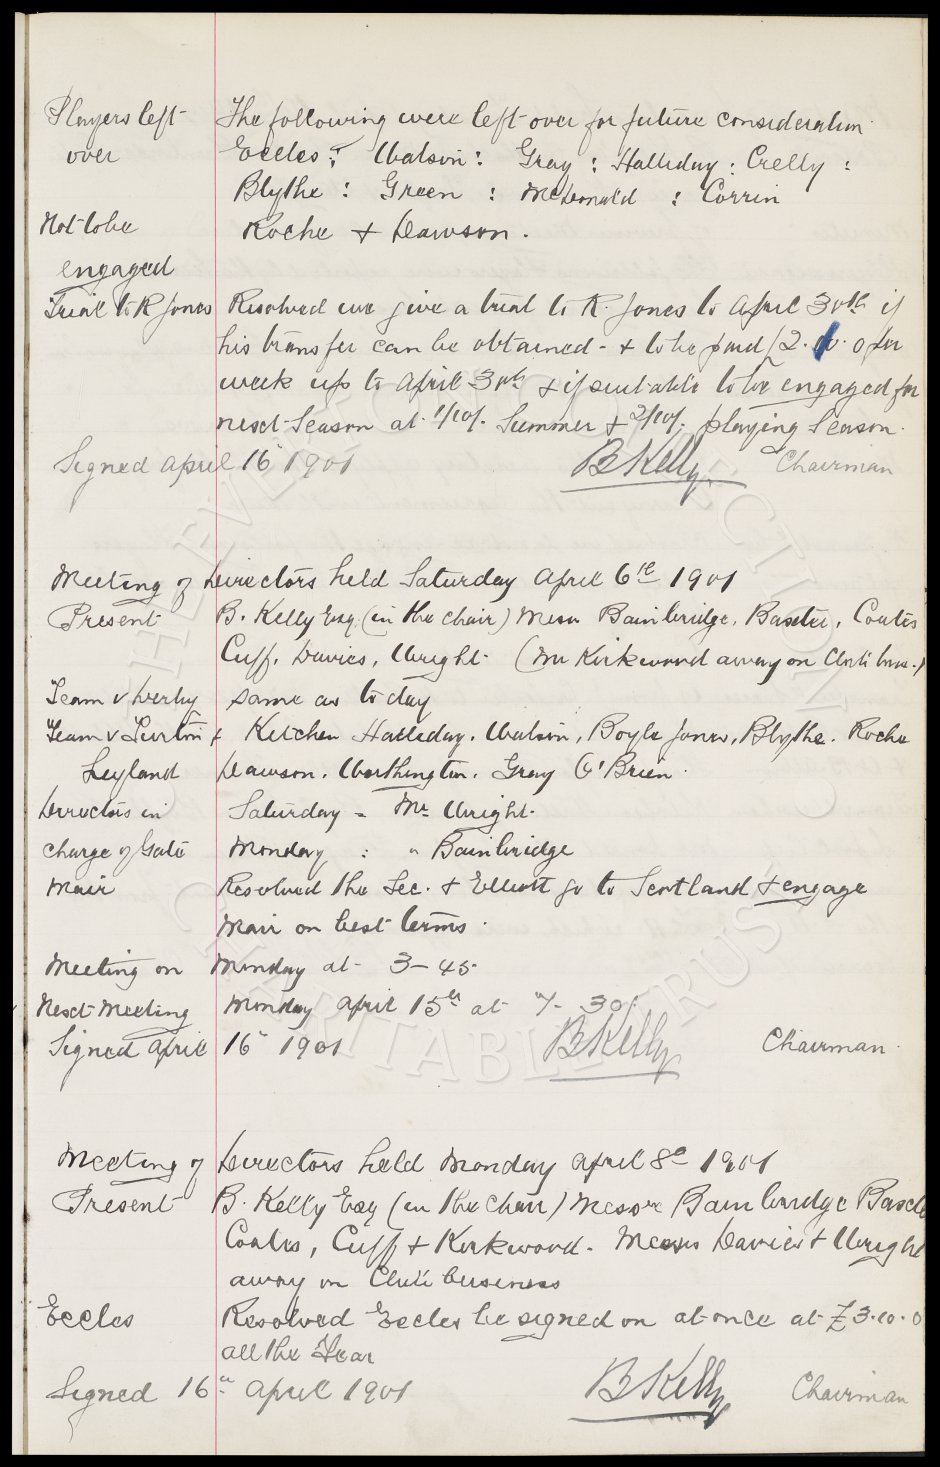 Players left The following were left over for future consideration
over Eccles : Watson : Gray : Halliday : Crelly :
Blythe : Green : McDonald : Corrin
Not to be Roche & Dawson .
engaged
Trial to R Jones Resolved we give a trial to R. Jones to April 30th if
his transfer can be obtained - & to be paid 2. 10. 0 per
week up to April 30th & if suitable to be engaged for
next Season at 1/10/- Summer & 2/10/- playing Season.
Signed April 16 1901 B Kelly Chairman
Meeting of Directors held Saturday April 6th 1901
Present B. Kelly Esq. (in the chair) Messrs Bainbridge, Baxter, Coates
Cuff, Davies, Wright. (Mr Kirkwood away on Club bus.)
Team v Derby same as to day
Team v Turton & Kitchen Halliday, Watson, Boyle Jones, Blythe, Roche
Leyland Dawson, Worthington, Gray O'Brien.
Directors in Saturday - Mr Wright.
charge of Gate Monday : " Bainbridge
Mair Resolved the Sec. & Elliott go to Scotland & engage
Mair on best terms.
Meeting on Monday at 3-45
Next Meeting Monday April 15th at 7-30
Signed April 16" 1901 B Kelly Chairman.
Meeting of Directors held Monday April 8th 1901
Present B. Kelly Esq (in the chair) Messrs Bainbridge Baxter
Coates, Cuff & Kirkwood. Messrs Davies & Wright
away on Club business
Eccles Resolved Eccles be signed on at once at £3.10.0
all the Year
Signed 16th April 1901 B Kelly Chairman
EVERTON COLLECTION CHARITABLE TRUST